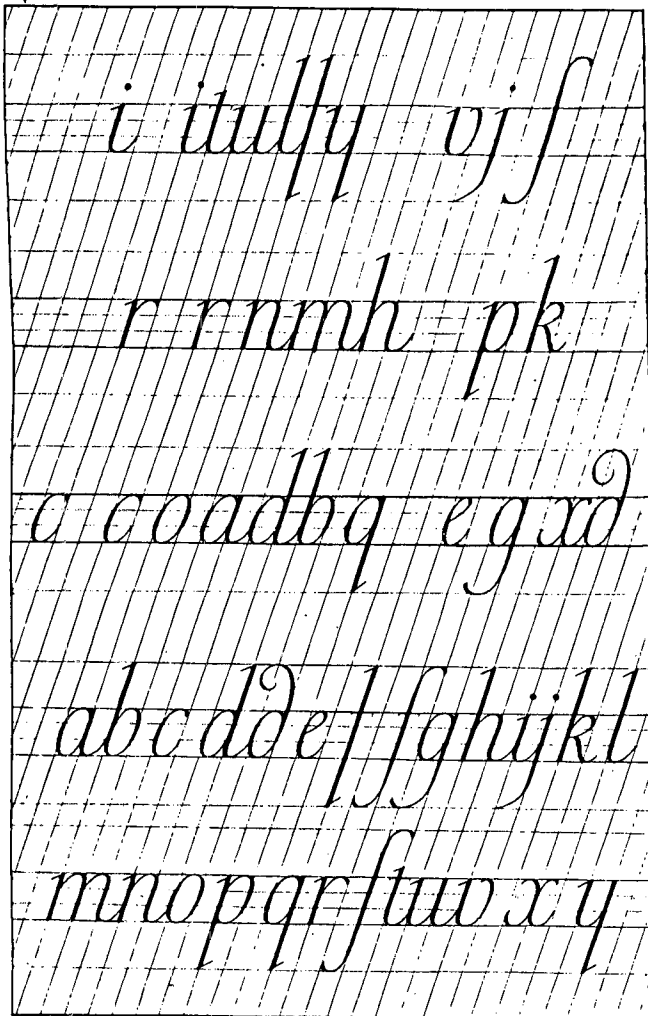 i itulſy vjſ
r rnmh pk
c coadbq egx∂
abcd∂eſſghijkl
mnopqrſtuvxy